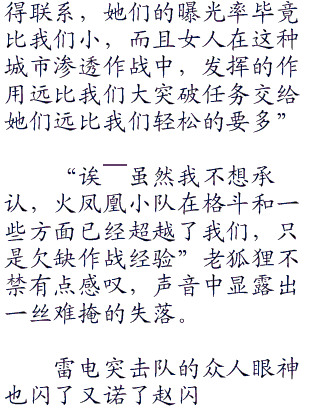 得联系，她们的曝光率毕竟
比我们小，而且女人在这种
城市渗透作战中，发挥的作
用远比我们大突破任务交给
她们远比我们轻松的要多”
“诶——虽然我不想承
认，火凤凰小队在格斗和一
些方面已经超越了我们，只
是欠缺作战经验”老狐狸不
禁有点感叹，声音中显露出
一丝难掩的失落。
雷电突击队的众人眼神
也闪了又诺了赵闪